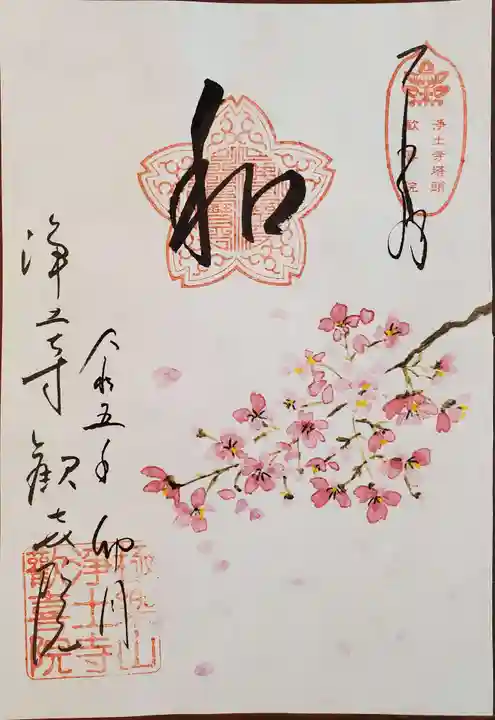 淨土寺塔頭
歓喜院
和
令和五年卯月
浄土寺歓喜院
極樂山
淨土寺
歡喜院